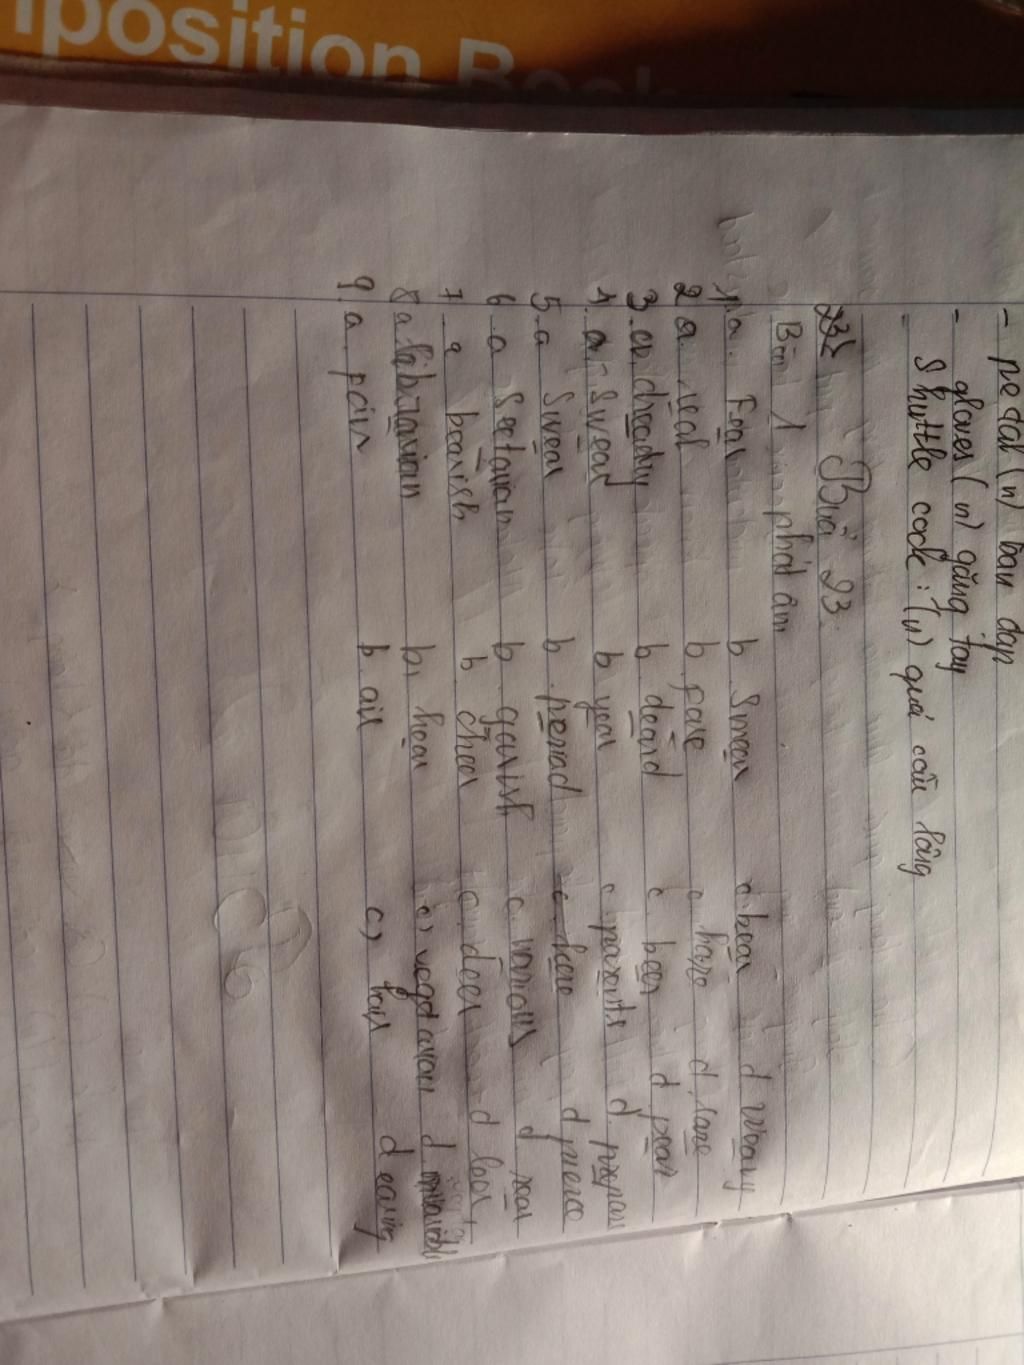 position Book
- pedal (n) bàn đạp
- gloves (n) găng tay
- shuttle cock : (n) quả cầu lông
Buổi 23
Bài 1 phát âm
1 a. Fear b smear c. bear d weary
2 a. real b. fare c hare d. rare
3. a. dready b. deard c. beer d pear
4. a. swear b year c parents d. prepare
5. a swear b. period c. here d pierce
6. a sectarian b. garish c. various d rear
7. a bearish b cheer c. deer d leer
8 a librarian b, hear c) vegetarian d
9. a pair b air c) hair d earing